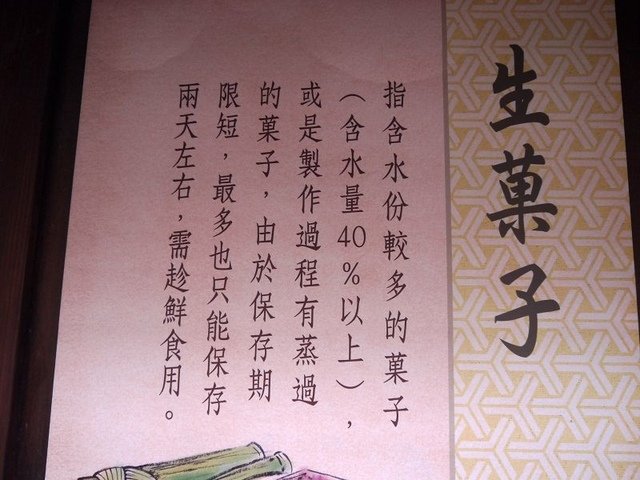 生菓子
指含水份較多的菓子
（含水量40%以上），
或是製作過程有蒸過
的菓子，由於保存期
限短，最多也只能保存
兩天左右，需趁鮮食用。